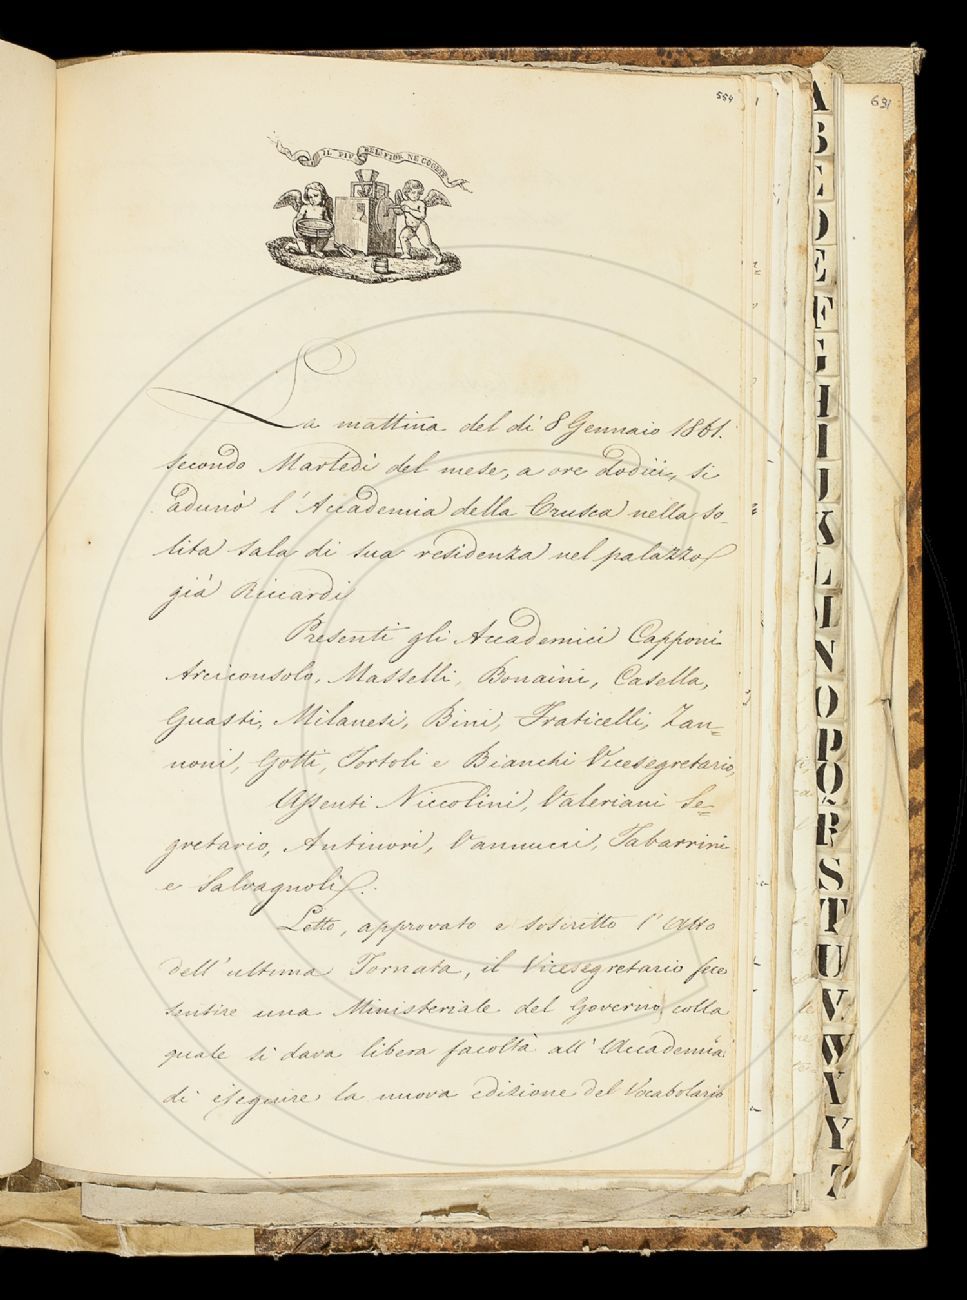 554
691
IL PIÙ BEL FIOR NE COGLIE
La mattina del dì 8 Gennaio 1861.
secondo Martedì del mese, a ore dodici, si
adunò l'Accademia della Crusca nella so=
lita sala di sua residenza nel palazzo
già Riccardi
Presenti gli Accademici Capponi
Arciconsolo, Masselli, Bonaini, Casella,
Guasti, Milanesi, Bini, Fraticelli, Zan=
noni, Gotti, Tortoli e Bianchi Vicesegretario,
Assenti Niccolini, Valeriani Se=
gretario, Antinori, Vannucci, Tabarrini
e Salvagnoli.
Letto, approvato e soscritto l'Atto
dell'ultima Tornata, il Vicesegretario fece
sentire una Ministeriale del Governo, colla
quale si dava libera facoltà all'Accademia
di eseguire la nuova edizione del Vocabolario
A
B
C
D
E
F
G
H
I
J
K
L
M
N
O
P
Q
R
S
T
U
V
W
X
Y
Z